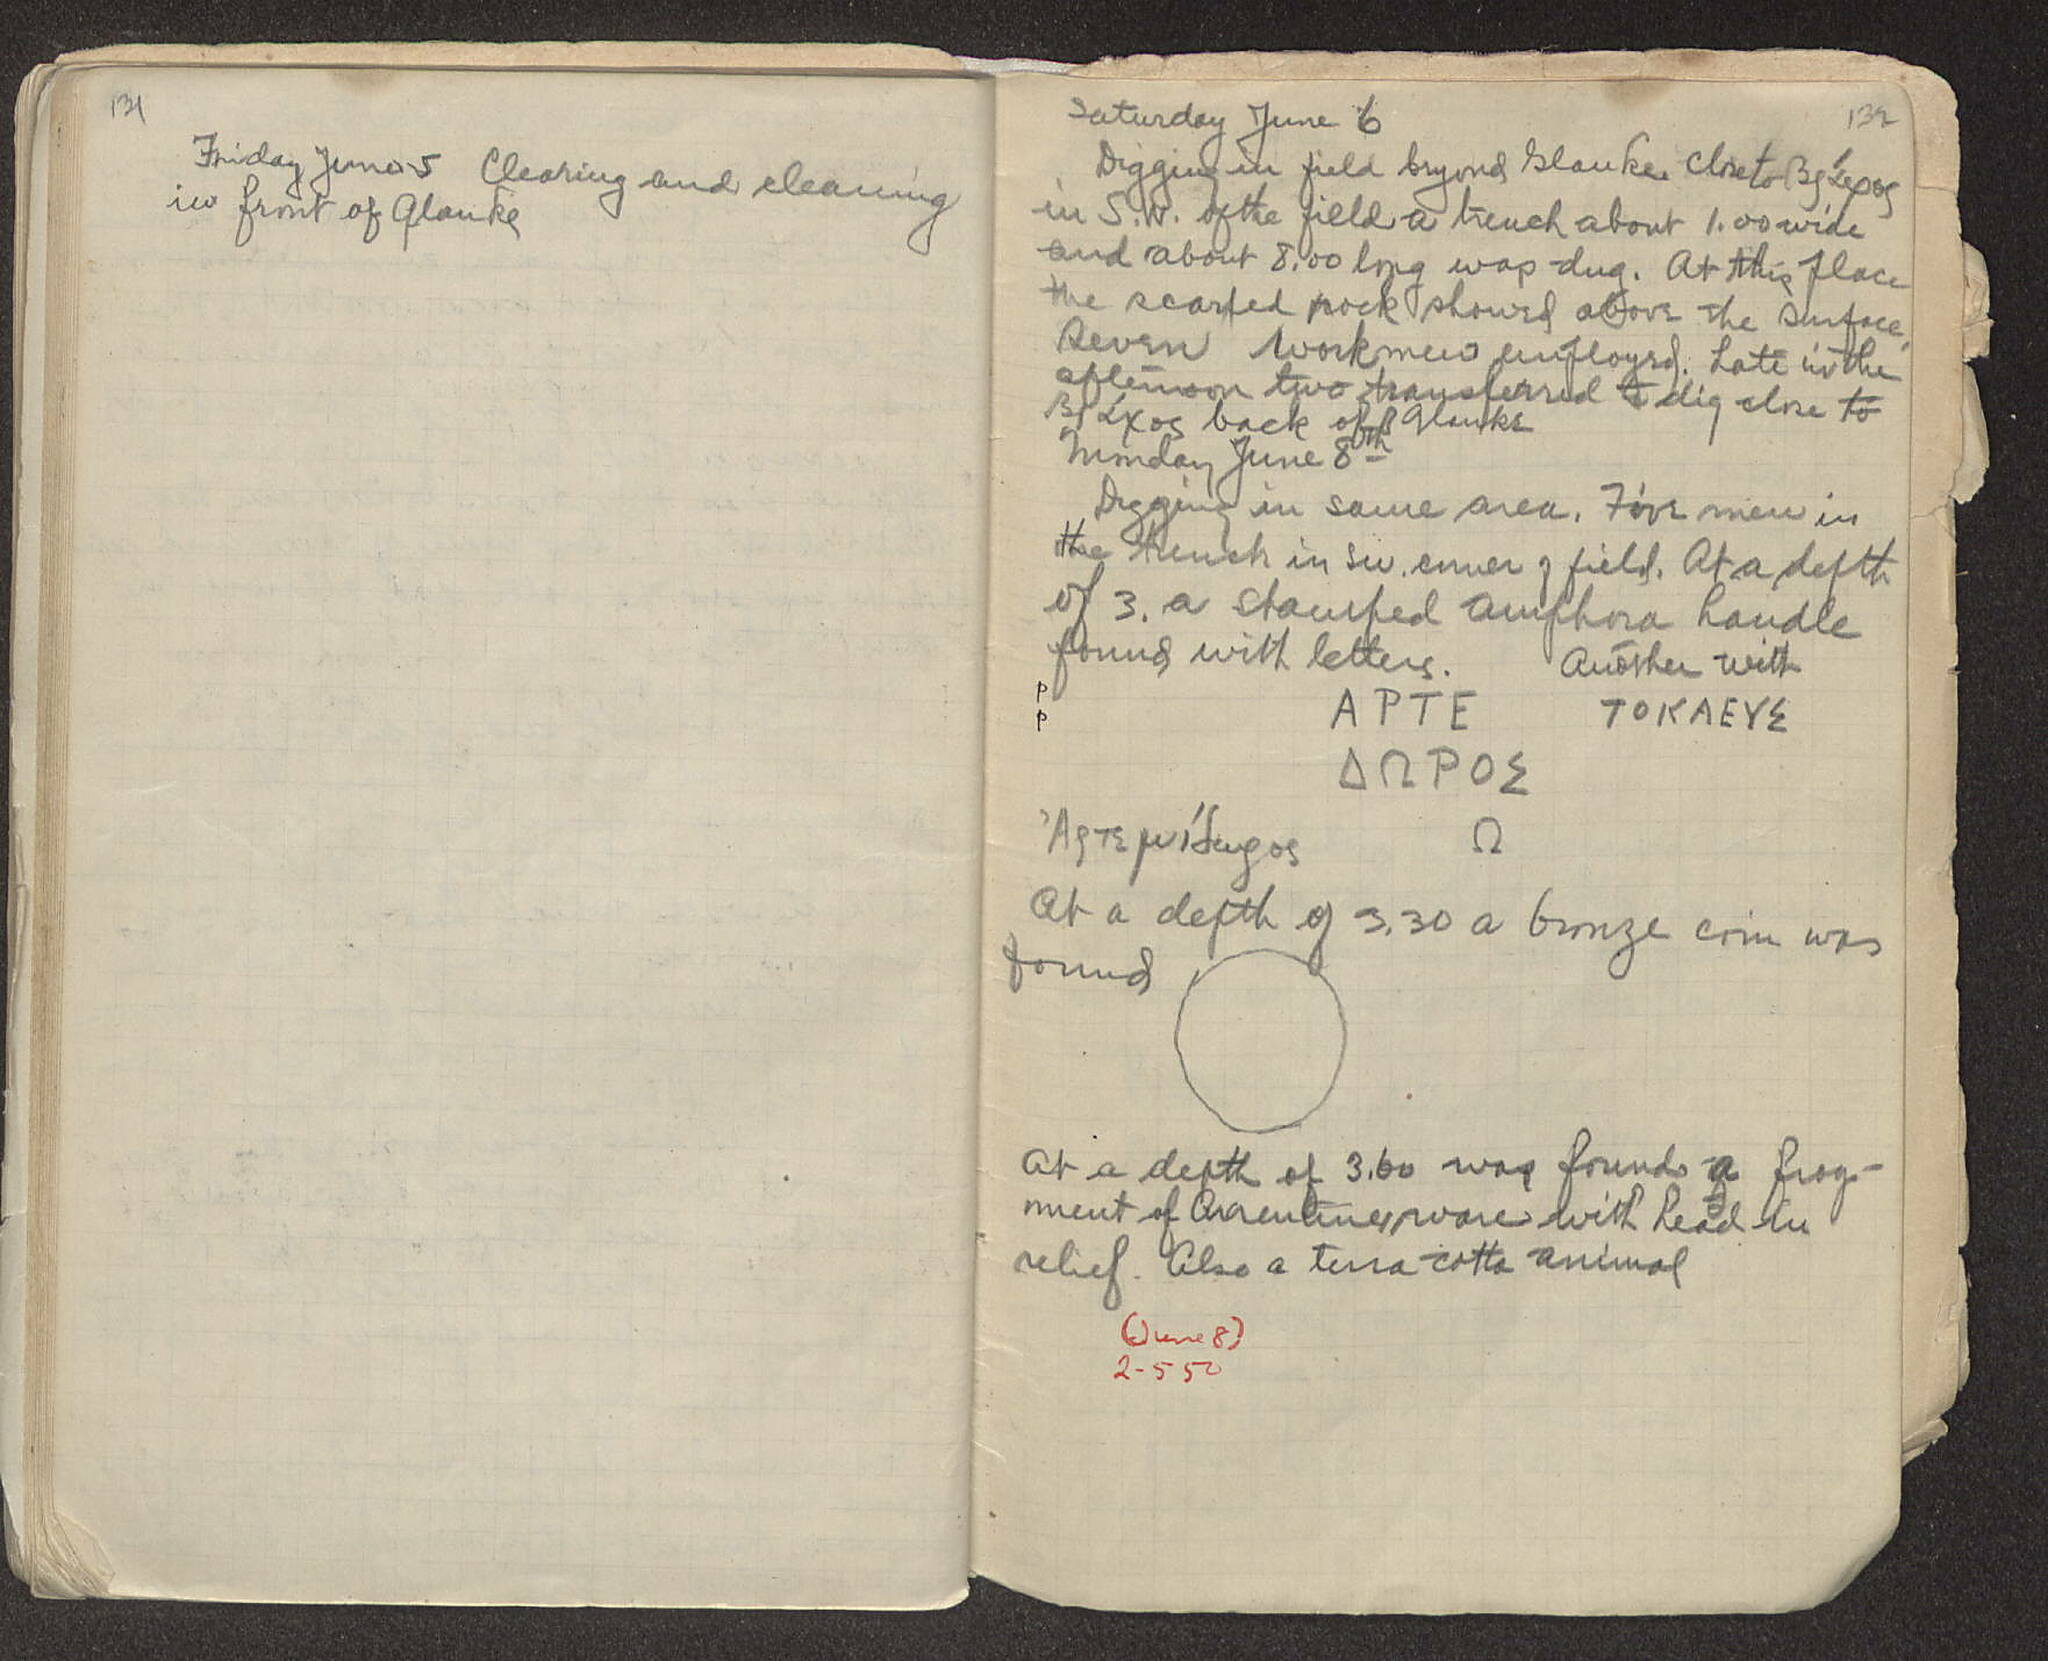 131
Friday June 5 Clearing and cleaning
in front of Glauke
132
Saturday June 6
Digging in field beyond Glauke. Close to Βράχος
in S.W. of the field a trench about 1.00 wide
and about 8.00 long was dug. At this place
the scarped rock showed above the surface.
Seven workmen employed. Late in the
afternoon two transferred to dig close to
Βράχος back of Glauke
Monday June 8th
Digging in same area. Five men in
the trench in S.W. corner of field. At a depth
of 3. a stamped amphora handle
found with letters. Another with
P
P
ΑΡΤΕ ΤΟΚΛΕΥΣ
ΔΩΡΟΣ
Ἀρτεμίδωρος Ω
At a depth of 3.30 a bronze coin was
found
At a depth of 3.60 was found a frag-
ment of Arrentine ware with head in
relief. Also a terra-cotta animal
(June 8)
2-550